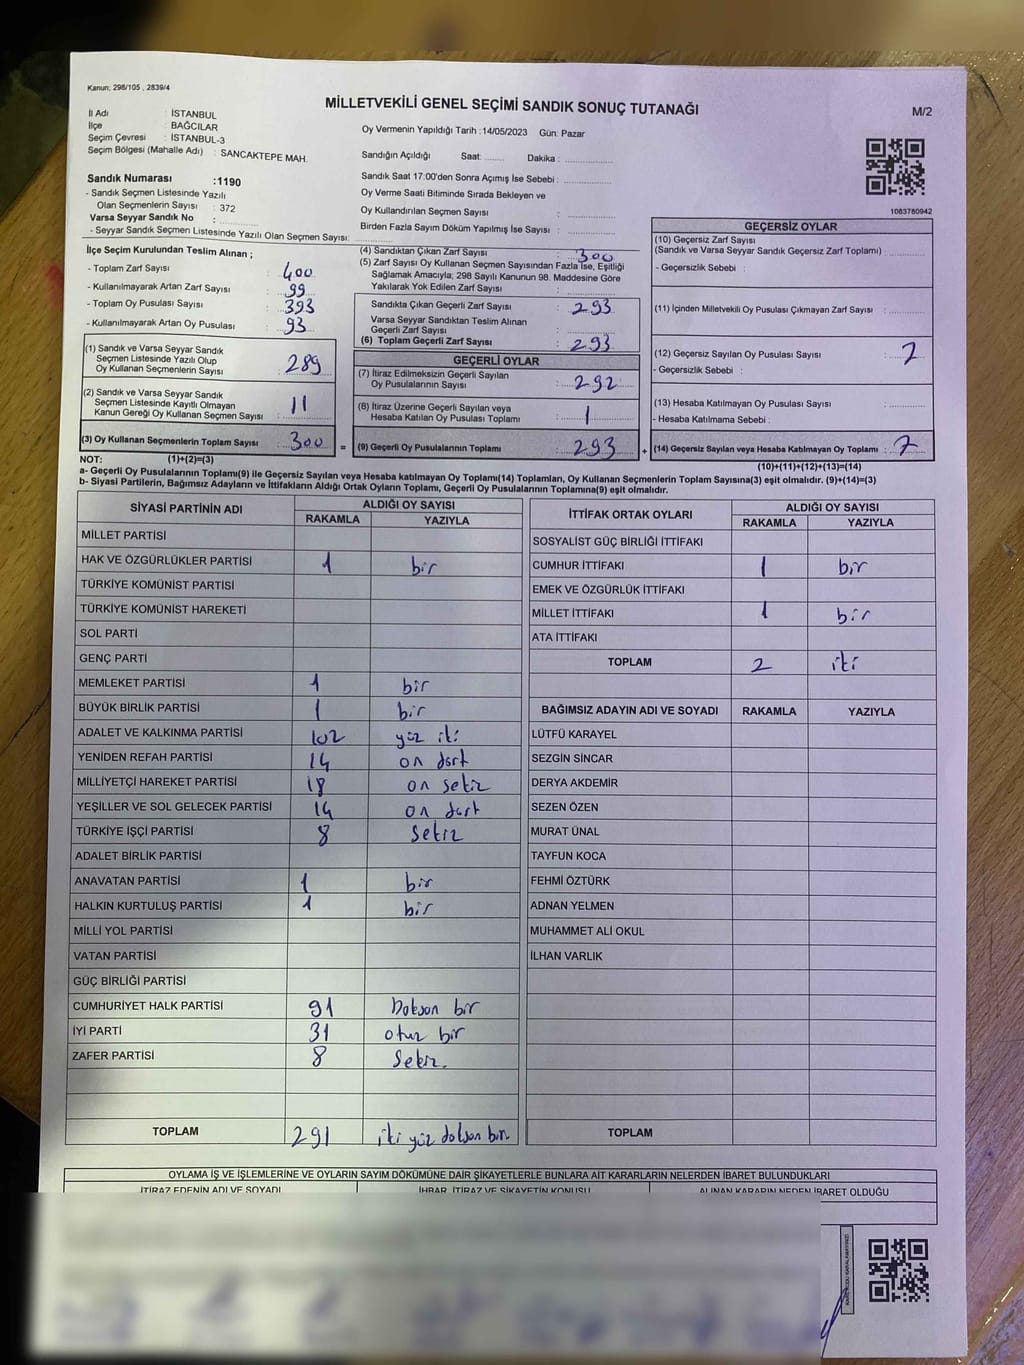 Kanun; 298/105 , 2839/4
MİLLETVEKİLİ GENEL SEÇİMİ SANDIK SONUÇ TUTANAĞI
M/2
İl Adı : İSTANBUL
İlçe : BAĞCILAR
Seçim Çevresi : İSTANBUL-3
Seçim Bölgesi (Mahalle Adı) : SANCAKTEPE MAH.
Oy Vermenin Yapıldığı Tarih :14/05/2023 Gün: Pazar
Sandığın Açıldığı Saat: Dakika :
Sandık Saat 17:00'den Sonra Açımış İse Sebebi :
Oy Verme Saati Bitiminde Sırada Bekleyen ve
Oy Kullandırılan Seçmen Sayısı :
Birden Fazla Sayım Döküm Yapılmış İse Sayısı :
1083780942
Sandık Numarası :1190
- Sandık Seçmen Listesinde Yazılı
Olan Seçmenlerin Sayısı : 372
Varsa Seyyar Sandık No :
- Seyyar Sandık Seçmen Listesinde Yazılı Olan Seçmen Sayısı:
İlçe Seçim Kurulundan Teslim Alınan ;
- Toplam Zarf Sayısı : 400
- Kullanılmayarak Artan Zarf Sayısı : 99
- Toplam Oy Pusulası Sayısı : 393
- Kullanılmayarak Artan Oy Pusulası : 93
(1) Sandık ve Varsa Seyyar Sandık
Seçmen Listesinde Yazılı Olup
Oy Kullanan Seçmenlerin Sayısı : 289
(2) Sandık ve Varsa Seyyar Sandık
Seçmen Listesinde Kayıtlı Olmayan
Kanun Gereği Oy Kullanan Seçmen Sayısı : 11
(3) Oy Kullanan Seçmenlerin Toplam Sayısı : 300 =
(4) Sandıktan Çıkan Zarf Sayısı : 300
(5) Zarf Sayısı Oy Kullanan Seçmen Sayısından Fazla İse, Eşitliği
Sağlamak Amacıyla; 298 Sayılı Kanunun 98. Maddesine Göre
Yakılarak Yok Edilen Zarf Sayısı :
Sandıkta Çıkan Geçerli Zarf Sayısı : 293
Varsa Seyyar Sandıktan Teslim Alınan
Geçerli Zarf Sayısı :
(6) Toplam Geçerli Zarf Sayısı : 293
GEÇERLİ OYLAR
(7) İtiraz Edilmeksizin Geçerli Sayılan
Oy Pusulalarının Sayısı : 292
(8) İtiraz Üzerine Geçerli Sayılan veya
Hesaba Katılan Oy Pusulası Toplamı : 1
(9) Geçerli Oy Pusulalarının Toplamı : 293 +
GEÇERSİZ OYLAR
(10) Geçersiz Zarf Sayısı
(Sandık ve Varsa Seyyar Sandık Geçersiz Zarf Toplamı) :
- Geçersizlik Sebebi :
(11) İçinden Milletvekili Oy Pusulası Çıkmayan Zarf Sayısı :
(12) Geçersiz Sayılan Oy Pusulası Sayısı : 7
- Geçersizlik Sebebi :
(13) Hesaba Katılmayan Oy Pusulası Sayısı :
- Hesaba Katılmama Sebebi :
(14) Geçersiz Sayılan veya Hesaba Katılmayan Oy Toplamı : 7
NOT: (1)+(2)=(3) (10)+(11)+(12)+(13)=(14)
a- Geçerli Oy Pusulalarının Toplamı(9) ile Geçersiz Sayılan veya Hesaba katılmayan Oy Toplamı(14) Toplamları, Oy Kullanan Seçmenlerin Toplam Sayısına(3) eşit olmalıdır. (9)+(14)=(3)
b- Siyasi Partilerin, Bağımsız Adayların ve İttifakların Aldığı Ortak Oyların Toplamı, Geçerli Oy Pusulalarının Toplamına(9) eşit olmalıdır.
SİYASİ PARTİNİN ADI ALDIĞI OY SAYISI
RAKAMLA YAZIYLA
MİLLET PARTİSİ
HAK VE ÖZGÜRLÜKLER PARTİSİ 1 bir
TÜRKİYE KOMÜNİST PARTİSİ
TÜRKİYE KOMÜNİST HAREKETİ
SOL PARTİ
GENÇ PARTİ
MEMLEKET PARTİSİ 1 bir
BÜYÜK BİRLİK PARTİSİ 1 bir
ADALET VE KALKINMA PARTİSİ 102 yüz iki
YENİDEN REFAH PARTİSİ 14 on dört
MİLLİYETÇİ HAREKET PARTİSİ 18 on sekiz
YEŞİLLER VE SOL GELECEK PARTİSİ 14 on dört
TÜRKİYE İŞÇİ PARTİSİ 8 sekiz
ADALET BİRLİK PARTİSİ
ANAVATAN PARTİSİ 1 bir
HALKIN KURTULUŞ PARTİSİ 1 bir
MİLLİ YOL PARTİSİ
VATAN PARTİSİ
GÜÇ BİRLİĞİ PARTİSİ
CUMHURİYET HALK PARTİSİ 91 Doksan bir
İYİ PARTİ 31 otuz bir
ZAFER PARTİSİ 8 Sekiz.
TOPLAM 291 iki yüz doksan bir
İTTİFAK ORTAK OYLARI ALDIĞI OY SAYISI
RAKAMLA YAZIYLA
SOSYALİST GÜÇ BİRLİĞİ İTTİFAKI
CUMHUR İTTİFAKI 1 bir
EMEK VE ÖZGÜRLÜK İTTİFAKI
MİLLET İTTİFAKI 1 bir
ATA İTTİFAKI
TOPLAM 2 iki
BAĞIMSIZ ADAYIN ADI VE SOYADI RAKAMLA YAZIYLA
LÜTFÜ KARAYEL
SEZGİN SİNCAR
DERYA AKDEMİR
SEZEN ÖZEN
MURAT ÜNAL
TAYFUN KOCA
FEHMİ ÖZTÜRK
ADNAN YELMEN
MUHAMMET ALİ OKUL
İLHAN VARLIK
TOPLAM
OYLAMA İŞ VE İŞLEMLERİNE VE OYLARIN SAYIM DÖKÜMÜNE DAİR ŞİKAYETLERLE BUNLARA AİT KARARLARIN NELERDEN İBARET BULUNDUKLARI
İTİRAZ EDENİN ADI VE SOYADI İHBAR, İTİRAZ VE ŞİKAYETİN KONUSU ALINAN KARARIN NEDEN İBARET OLDUĞU